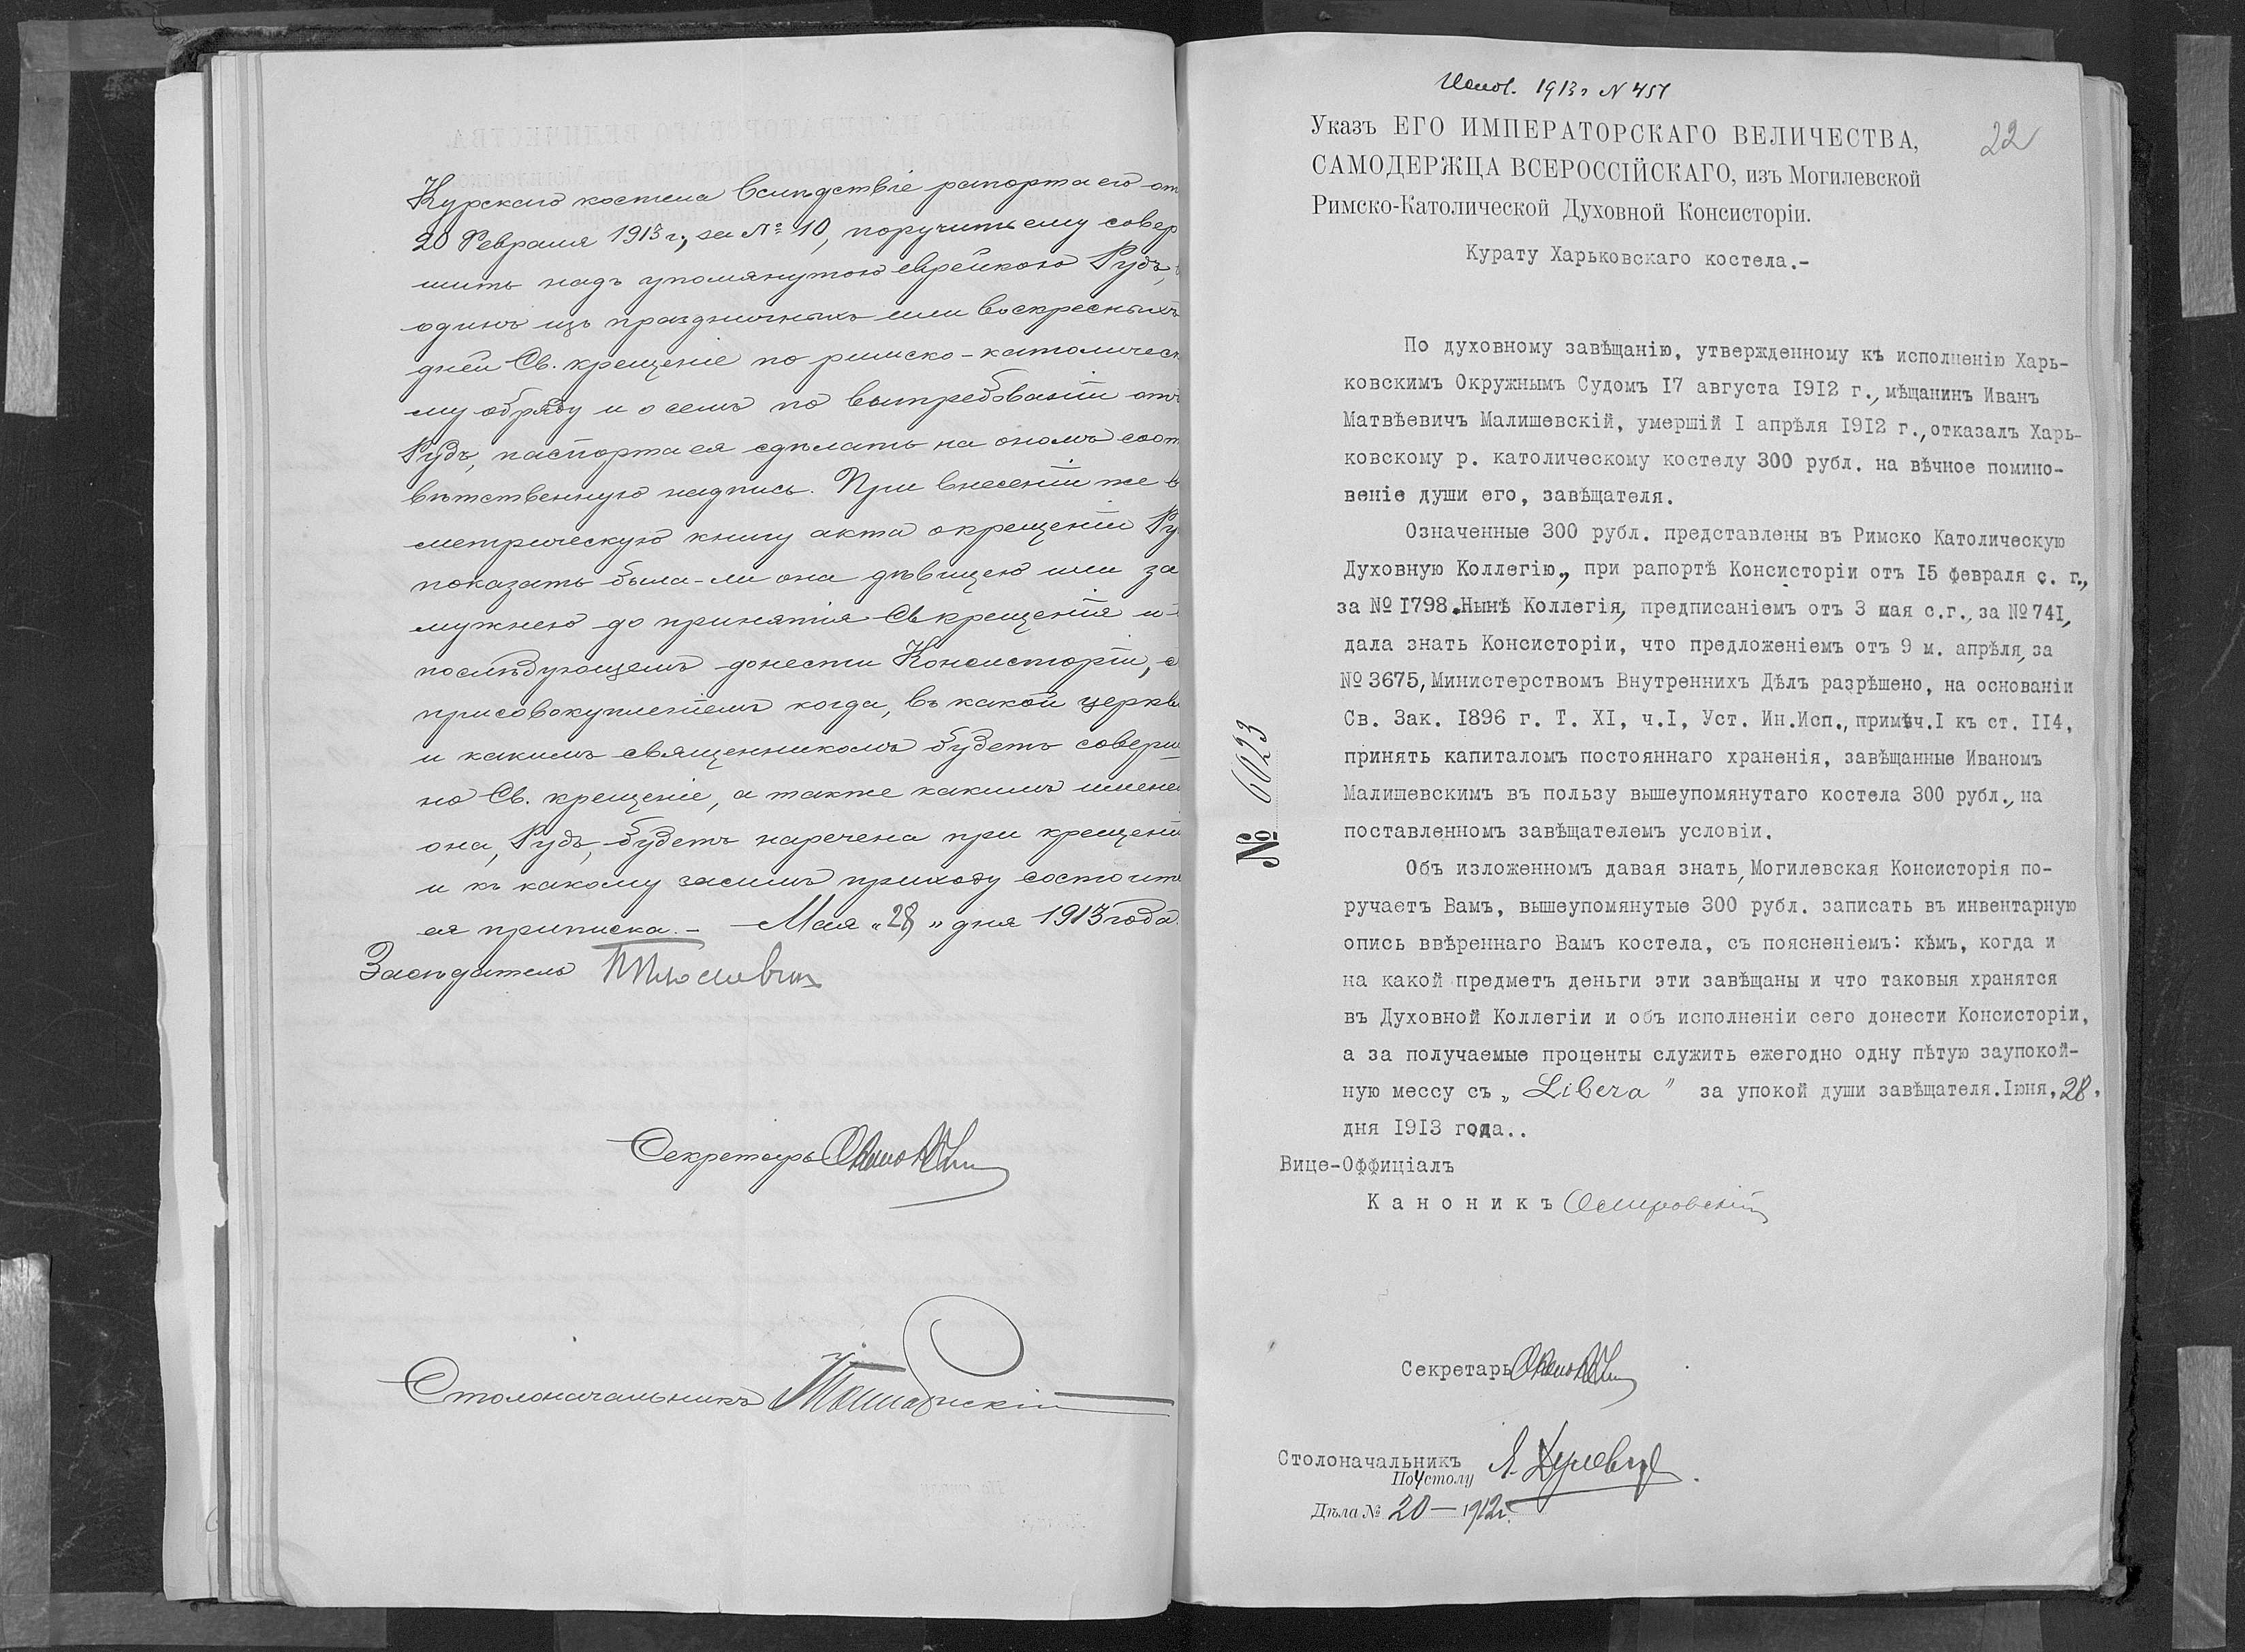 Курскаго костела вслѣдствіе рапорта его от
20 Февраля 1913 г., за № 10, поручить ему совер
шить надъ упомянутою еврейкою Рудь,
одинъ изъ праздничныхъ или воскресныхъ
дней Св. крещеніе по римско-католическ
му обряду и о семъ по вытребованіи отъ
Рудь, паспорта ея сдѣлать на ономъ соот
вѣтственную надпись. При внесеніи же в
метрическую книгу акта о крещеніи Ру
показать была-ли она дѣвицею или за
мужнею до принятія Св крещенія и
послѣдующемъ донести Консисторіи, с
присовокупленіемъ когда, въ какой церкв
и какимъ священникомъ будетъ соверш
но Св. крещеніе, а также какимъ имене
она, Рудь, будетъ наречена при крещені
и къ какому засимъ приходу состоит
ея приписка. – Мая „28„ дня 1913 года.
Засѣдатель
Секретарь
Столоначальникъ
1913 г № 451
22
Указъ ЕГО ИМПЕРАТОРСКАГО ВЕЛИЧЕСТВА,
САМОДЕРЖЦА ВСЕРОССІЙСКАГО, изъ Могилевской
Римско-Католической Духовной Консисторіи.
Курату Харьковскаго костела.-
По духовному завѣщанію, утвержденному къ исполненію Харь-
ковскимъ Окружнымъ Судомъ I7 августа I9I2 г., мѣщанинъ Иванъ
Матвѣевичъ Малишевскій, умершій I апрѣля I9I2 г., отказалъ Харь-
ковскому р. католическому костелу 300 рубл. на вѣчное помино-
веніе души его, завѣщателя.
Означенные 300 рубл. представлены въ Римско Католическую
Духовную Коллегію, при рапортѣ Консисторіи отъ I5 февраля с. г.,
за № I798. Нынѣ Коллегія, предписаніемъ отъ 3 мая с.г., за № 74I,
дала знать Консисторіи, что предложеніемъ отъ 9 м. апрѣля, за
№ 3675, Министерствомъ Внутреннихъ Дѣлъ разрѣшено, на основаніи
Св. Зак. I896 г. Т. XI, ч.I, Уст. Ин.Исп., примѣч.I къ ст. II4,
принять капиталомъ постояннаго храненія, завѣщанные Иваномъ
Малишевскимъ въ пользу вышеупомянутаго костела 300 рубл., на
поставленномъ завѣщателемъ условіи.
Объ изложенномъ давая знать, Могилевская Консисторія по-
ручаетъ Вамъ, вышеупомянутые 300 рубл. записать въ инвентарную
опись ввѣреннаго Вамъ костела, съ поясненіемъ: кѣмъ, когда и
на какой предметъ деньги эти завѣщаны и что таковыя хранятся
въ Духовной Коллегіи и объ исполненіи сего донести Консисторіи,
а за получаемые проценты служить ежегодно одну пѣтую заупокой-
ную мессу съ „ Libera " за упокой души завѣщателя. Іюня, 28,
дня I9I3 года..
№ 6023
Вице-Оффиціалъ
Каноникъ
Секретарь
Столоначальникъ
По 4 столу
Дѣла № 20 — 1912 г.